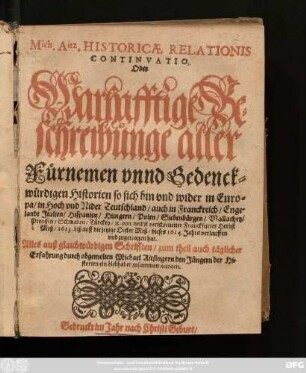 Mich. Aitz. HISTORICÆ RELATIONIS
CONTINVATIO.
Oder
Warhafftige Be-
schreibunge aller
Fürnemen vnnd Gedenck-
würdigen Historien so sich hin vnd wider in Euro-
pa/ in Hoch vnd Nider Teutschland/ auch in Franckreich/ Enge-
landt Italien/ Hispanien/ Hungern/ Polen/ Siebenbürgen/ Wallachey/
1613. biß auff 1614 Jahrs verlauffen
vnd zugetragen hat.
Alles auß glaubwürdigen Schrifften/ zum theil auch täglicher
Erfahrung durch obgemelten Michael Aitsingern den Jüngern der Hi-
storien
Gedruckt im Jahr nach Christi Geburt/